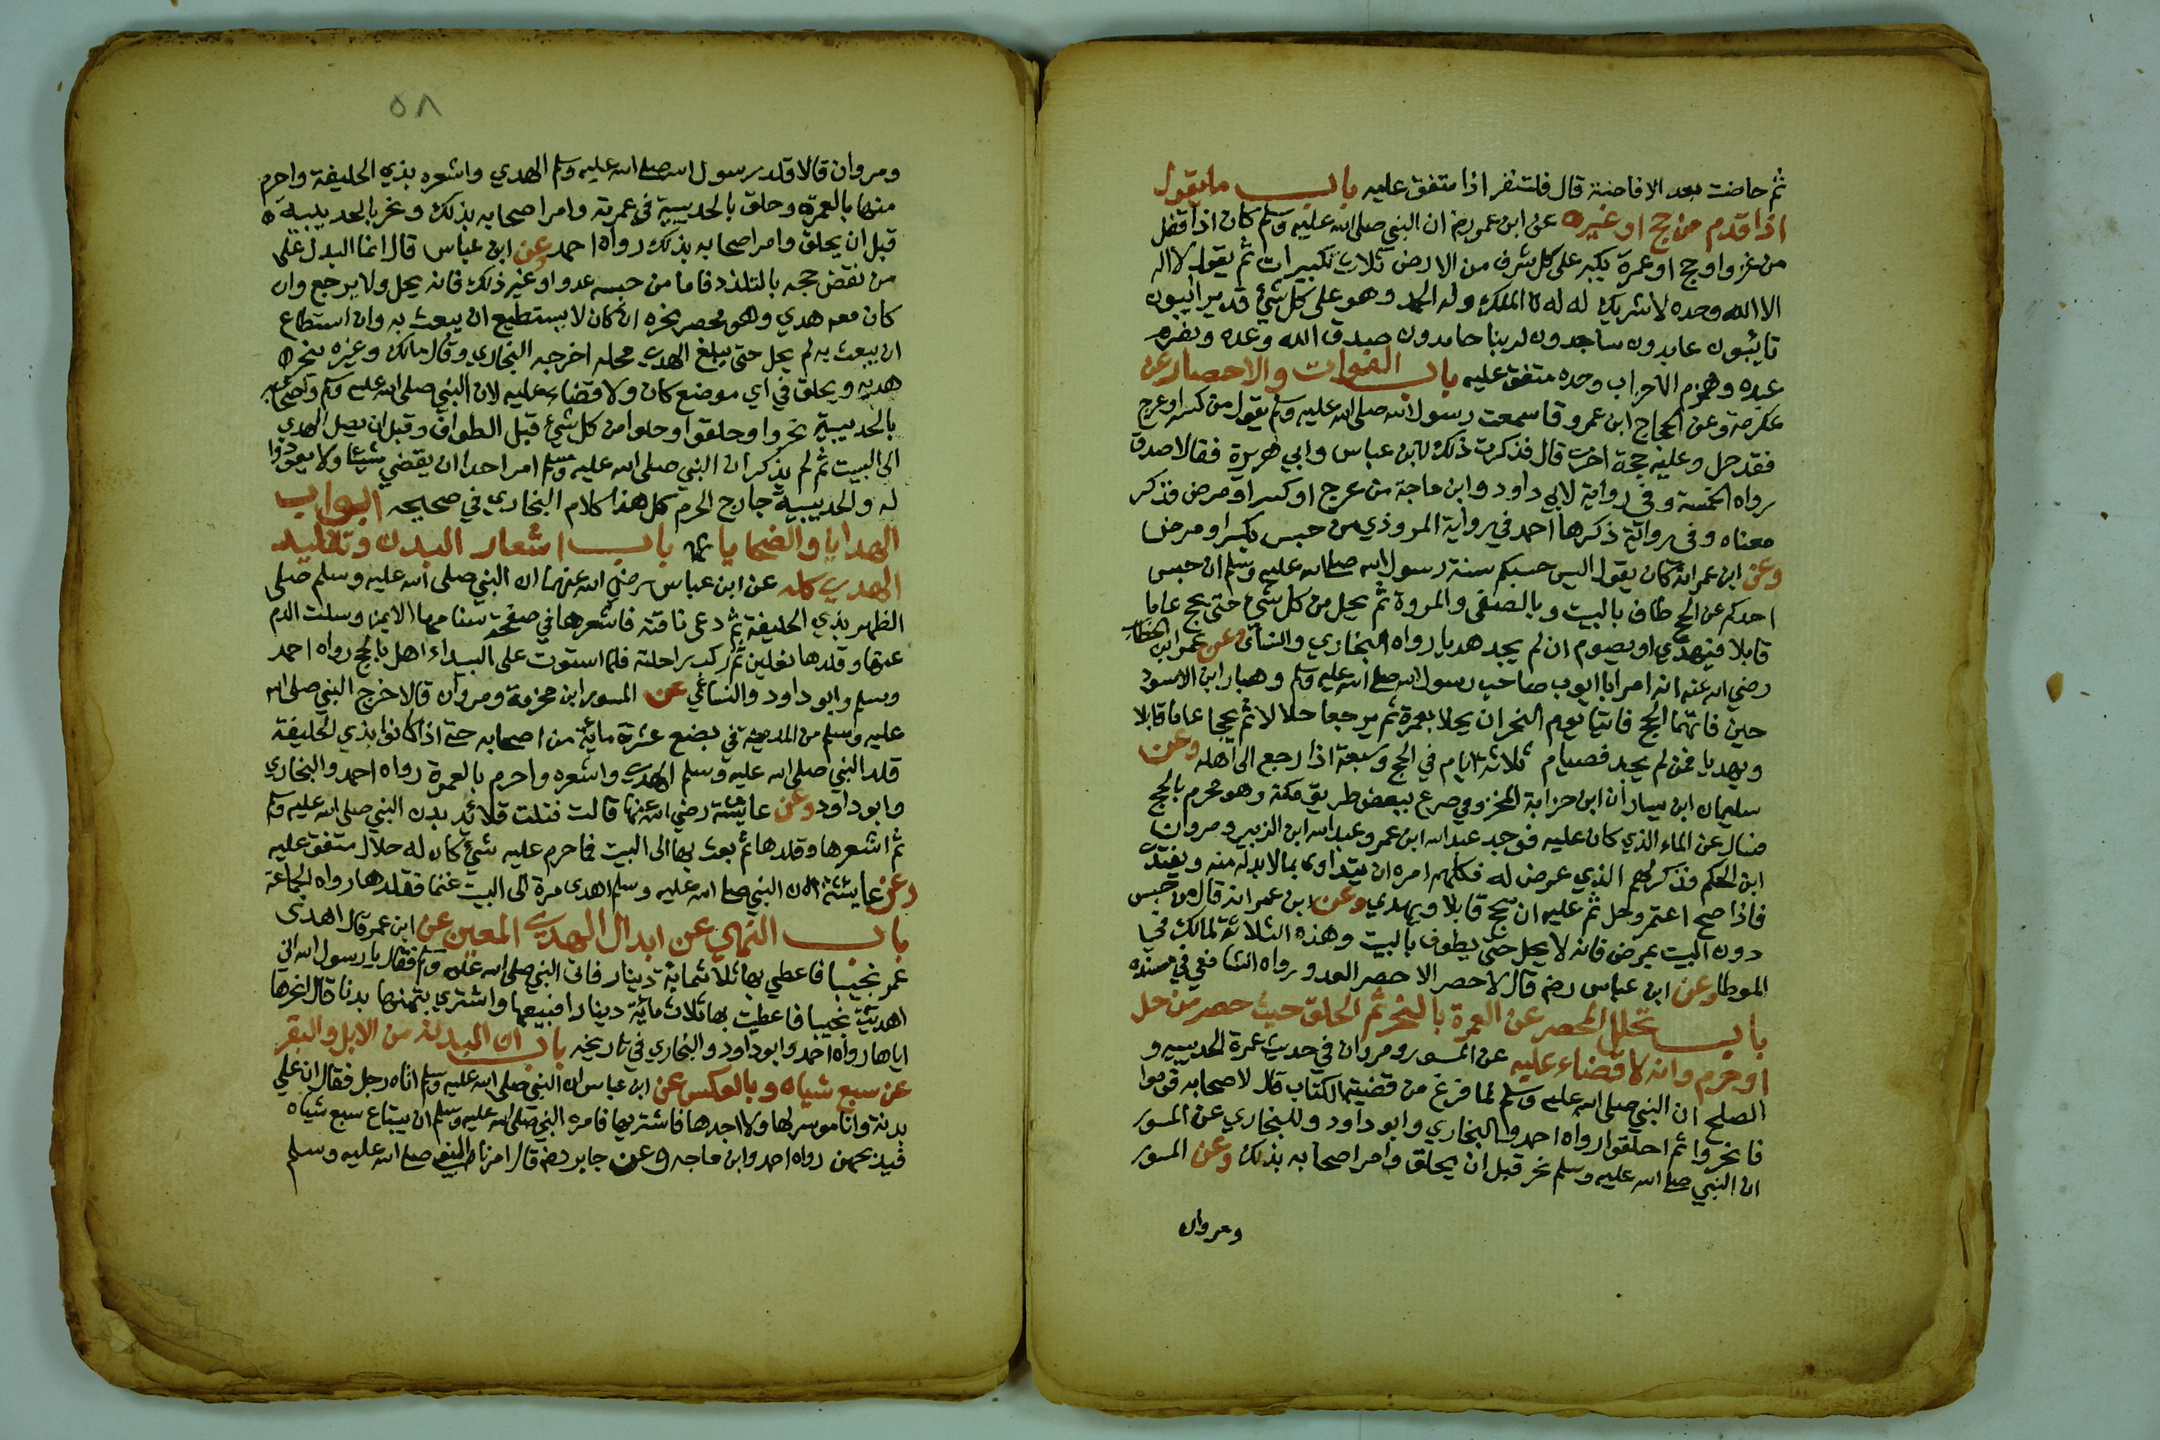 ثم حاضت بعد الافاضة قال فلتنفر اذا متفق عليه باب ما يقول
اذا قدم من حج او غيره عن ابن عمر رضه ان النبي صلى الله عليه وسلم كان اذا قفل
من غزو او حج او عمرة يكبر على كل شرف من الارض ثلاث تكبيرات ثم يقول لا اله
الا الله وحده لا شريك له له الملك وله الحمد وهو على كل شيء قدير ائيبون
تايبون عابدون ساجدون لربنا حامدون صدق الله وعده ونصر
عبده وهزم الاحزاب وحده متفق عليه باب الفوات والاحصار عن
عكرمة وعن الحجاج ابن عمرو قا سمعت رسول الله صلى الله عليه وسلم يقول من كسر او عرج
فقد حل وعليه حجة اخرى قال فذكرت ذلك لابن عباس وابي هريرة فقالا صدق
رواه الخمسة وفي رواية لابي داود وابن ماجة من عرج او كسر او مرض فذكر
معناه وفي رواية ذكرها احمد في رواية المروذي من حبس بكسر او مرض
وعن ابن عمر انه كان يقول اليس حسبكم سنة رسول الله صلى الله عليه وسلم ان حبس
احدكم عن الحج طاف بالبيت وبالصفى والمروة ثم يحل من كل شيء حتى يحج عاما
قابلا فيهدي او يصوم ان لم يجد هديا رواه البخاري والنسائي وعن عمر ابن الخطاب
رضي الله عنه انه امر ابا ايوب صاحب رسول الله صلى الله عليه وسلم وهبار ابن الاسود
حين فاتهما الحج فاتيا يوم النحر ان يحلا بعمرة ثم يرجعا حلالا ثم يحجا عاما قابلا
ويهديا فمن لم يجد فصيام ثلاثة ايام في الحج وسبعة اذا رجع الى اهله وعن
سليمان ابن يسار ان ابن حزابة المخزومي صرع ببعض طريق مكة وهو محرم بالحج
فسال عن الماء الذي كان عليه فوجد عبد الله ابن عمر وعبد الله ابن الزبير ومروان
ابن الحكم فذكر لهم الذي عرض له فكلهم امره ان يتداوى بما لا بد له منه ويفتدي
فاذا صح اعتمر وحل ثم عليه ان يحج قابلا ويهدي وعن ابن عمر انه قال من حبس
دون البيت بمرض فانه لا يحل حتى يطوف بالبيت وهذه الثلاثة لمالك في
الموطا وعن ابن عباس رضه قال لا حصر الا حصر العدو رواه الشافعي في مسنده
باب تحلل المحصر عن العمرة بالنحر ثم الحلق حيث حصر من حل
او حرم وانه لا قضاء عليه عن المسور ومروان في حديث عمرة الحديبية و
الصلح ان النبي صلى الله عليه وسلم لما فرغ من قضية الكتاب قال لاصحابه قوموا
فانحروا ثم احلقوا رواه احمد والبخاري وابو داود وللبخاري عن المسور
ان النبي صلى الله عليه وسلم نحر قبل ان يحلق وامر اصحابه بذلك وعن المسور
ومروان
٥٨
ومروان قالا قلد رسول الله صلى الله عليه وسلم الهدي واشعره بذي الحليفة واحرم
منها بالعمرة وحلق بالحديبية في عمرته وامر اصحابه بذلك ونحر بالحديبية
قبل ان يحلق وامر اصحابه بذلك رواه احمد وعن ابن عباس قال انما البدل على
من نقض حجه بالتلذذ فاما من حبسه عدو او غير ذلك فانه يحل ولا يرجع وان
كان معه هدي وهو محصر نحره ان كان لا يستطيع ان يبعث به وان استطاع
ان يبعث به لم يحل حتى يبلغ الهدي محله اخرجه البخاري وقال مالك وغيره ينحر
هديه ويحلق في اي موضع كان ولا قضاء عليه لان النبي صلى الله عليه وسلم واصحابه
بالحديبية نحروا وحلقوا وحلوا من كل شيء قبل الطواف وقبل ان يصل الهدي
الى البيت ثم لم يذكر ان النبي صلى الله عليه وسلم امر احدا ان يقضي شيئا ولا يعودوا
له والحديبية خارج الحرم كل هذا كلام البخاري في صحيحه ابواب
الهدايا والضحايا باب اشعار البدن وتقليد
الهدي كله عن ابن عباس رضي الله عنهما ان النبي صلى الله عليه وسلم صلى
الظهر بذي الحليفة ثم دعى ناقته فاشعرها في صفحة سنامها الايمن وسلت الدم
عنها وقلدها نعلين ثم ركب راحلته فلما استوت على البيداء اهل بالحج رواه احمد
ومسلم وابو داود والنسائي عن المسور ابن مخرمة ومروان قالا خرج النبي صلى الله
عليه وسلم من المدينة في بضع عشرة مائة من اصحابه حتى اذا كانوا بذي الحليفة
قلد النبي صلى الله عليه وسلم الهدي واشعره واحرم بالعمرة رواه احمد والبخاري
وابو داود وعن عايشة رضي الله عنها قالت فتلت قلائد بدن النبي صلى الله عليه وسلم
ثم اشعرها وقلدها ثم بعث بها الى البيت فما حرم عليه شيء كان له حلال متفق عليه
وعن عايشة ان النبي صلى الله عليه وسلم اهدى مرة الى البيت غنما فقلدها رواه الجماعة
باب النهي عن ابدال الهدي المعين عن ابن عمر قال اهدى
عمر نجيبا فاعطي بها ثلاثمائة دينار فاتى النبي صلى الله عليه وسلم فقال يا رسول الله اني
اهديت نجيبا فاعطيت بها ثلاث مائة دينارا فابيعها واشتري بثمنها بدنا قال انحرها
اياها رواه احمد وابو داود والبخاري في تاريخه باب ان البدنة من الابل والبقر
عن سبع شياه وبالعكس عن ابن عباس ان النبي صلى الله عليه وسلم اتاه رجل فقال ان علي
بدنة وانا موسر لها ولا اجدها فاشتريها فامره النبي صلى الله عليه وسلم ان يبتاع سبع شياه
فيذبحهن رواه احمد وابن ماجه وعن جابر رضه قال امرنا النبي صلى الله عليه وسلم